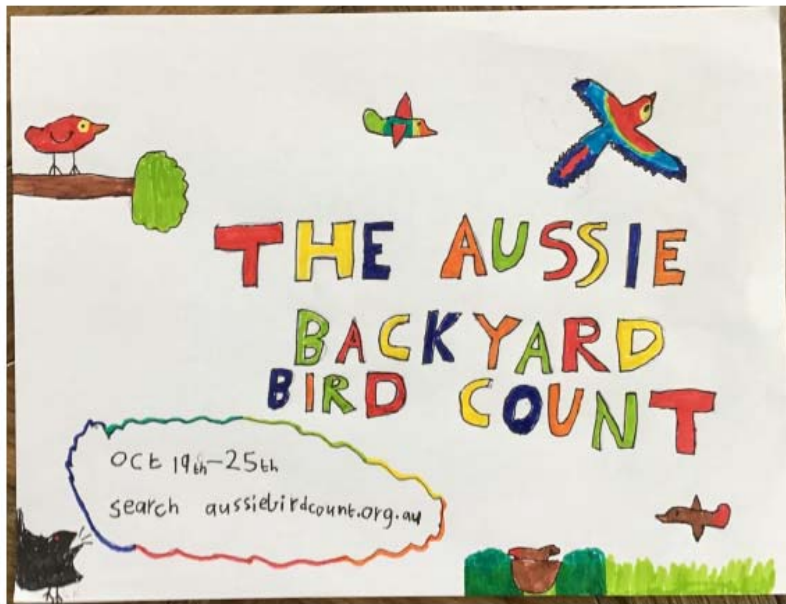 THE AUSSIE
BACKYARD
BIRD COUNT
Oct 19th-25th
search aussiebirdcount.org.au